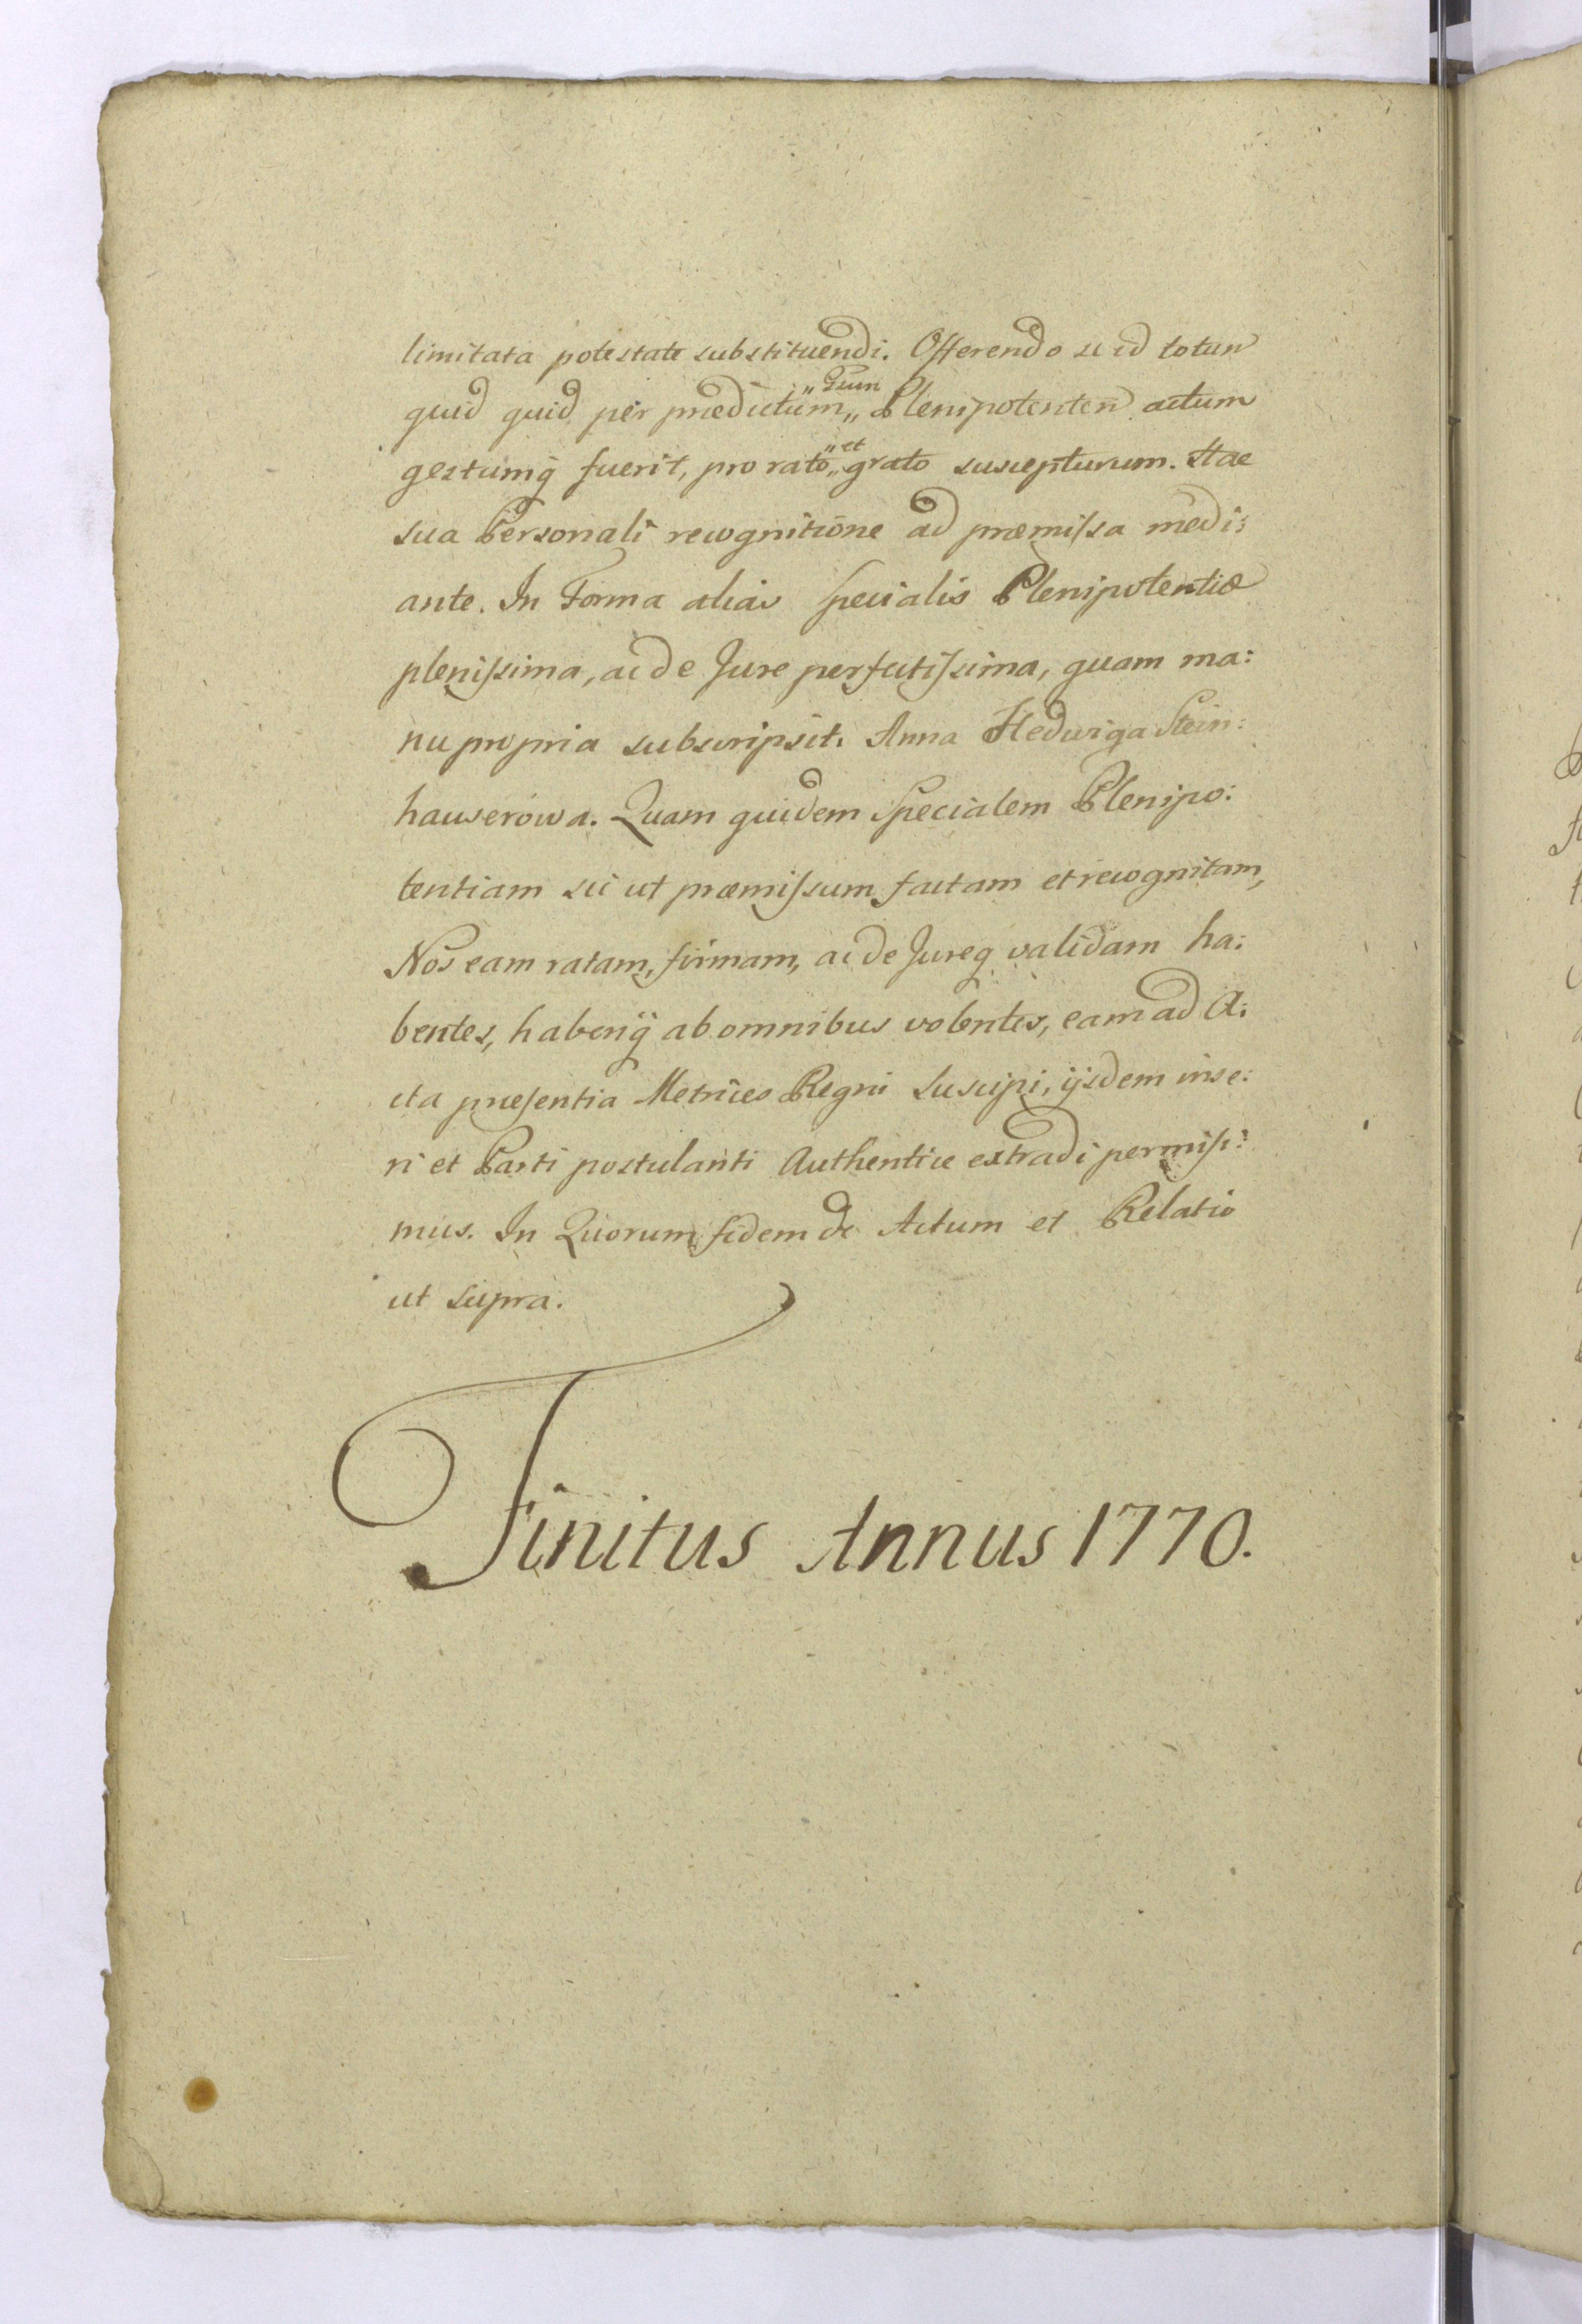 limitata potestate substituendi. Offerendo se id totum
quid quid per prædictum „Suum„ Plenipotenten actum
gestumq fuerit, pro rato „et„ grato suscepturum. Hac
sua Personali recognitione ad præmissa medi:
ante. In Forma alias specialis Plenipotentiæ
plenissima, ac de Jure perfectissima, quam ma:
nu propria subscripsit. Anna Hedwiga Stein:
hauserowa. Quam quidem Specialem Plenipo:
tentiam sic ut præmissum factam et recognitam,
Nos eam ratam, firmam, ac de Jureq validam ha:
bentes, haberiq ab omnibus volentes, eam ad A:
cta præsentia Metrices Regni Suscipi, ijsdem inse:
ri et Parti postulanti Authentice extradi permisi:
mus. In Quorum fidem dc Actum et Relatio
ut supra.
Finitus Annus 1770.